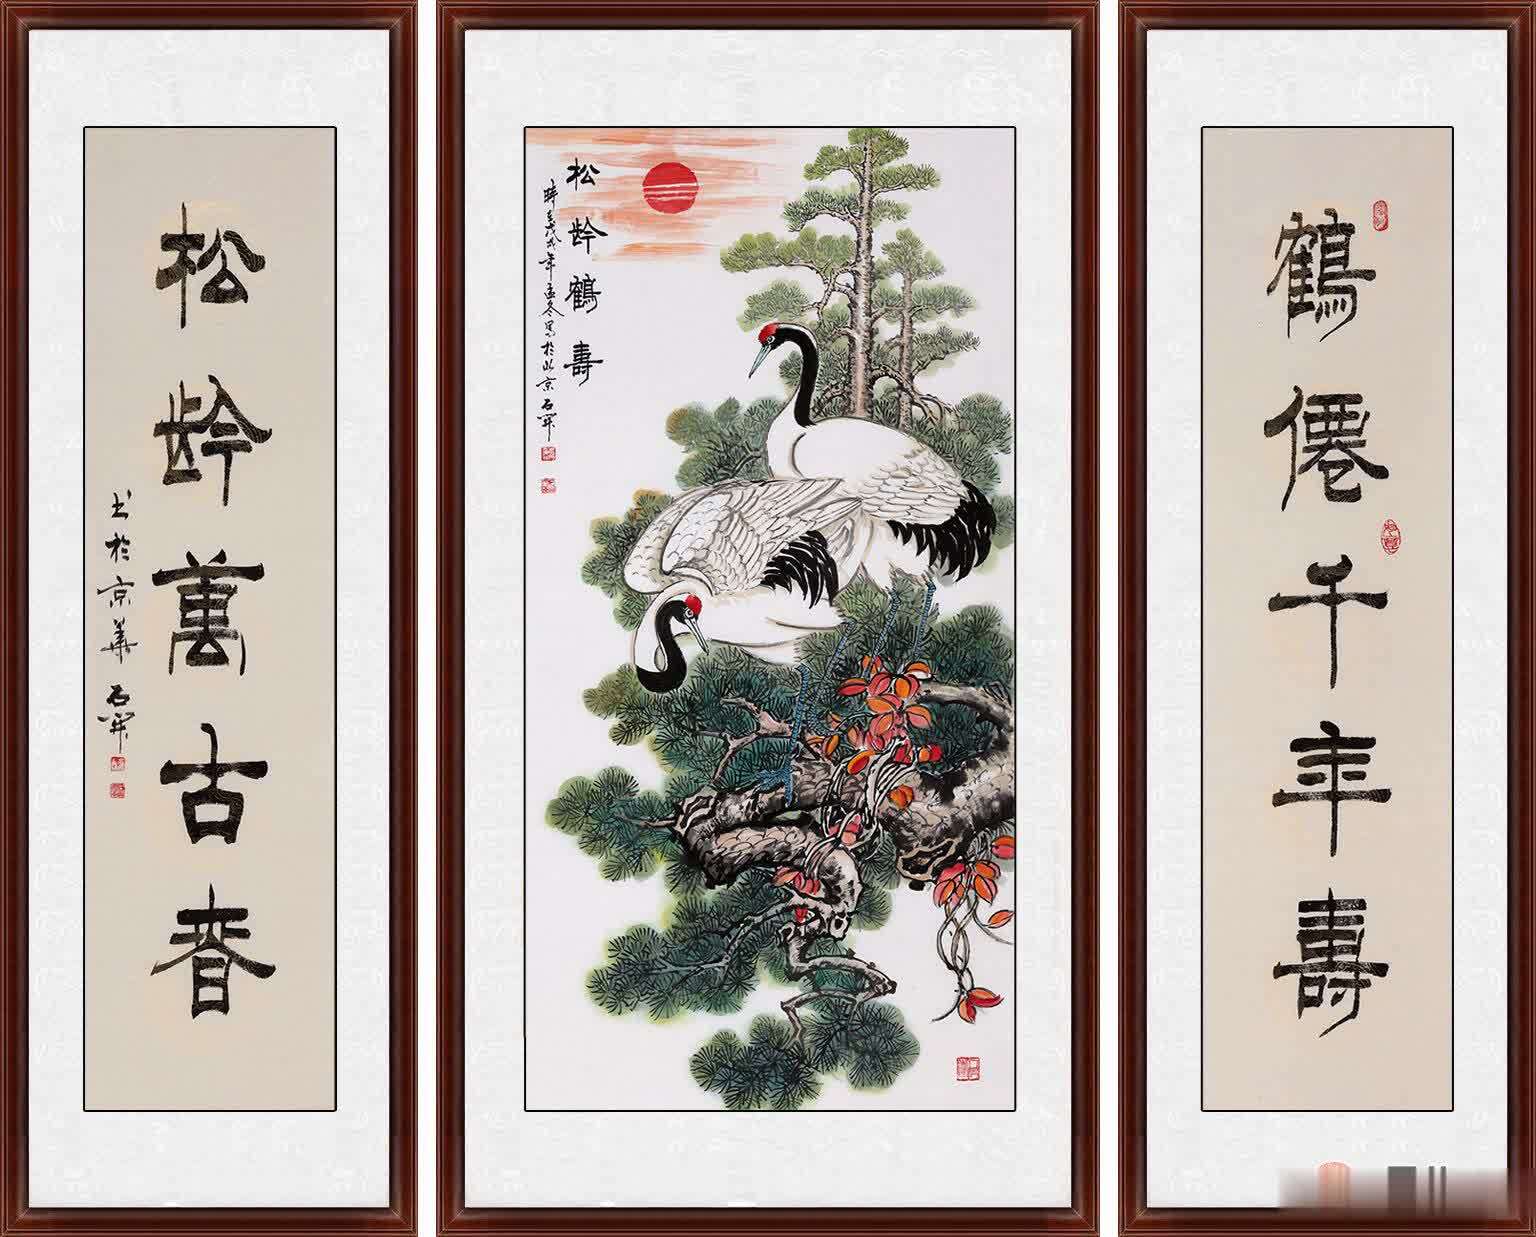 鶴僊千年壽
松龄鶴壽
時在戊戌年孟冬寫於北京 石開
松龄萬古春
书於京華 石開